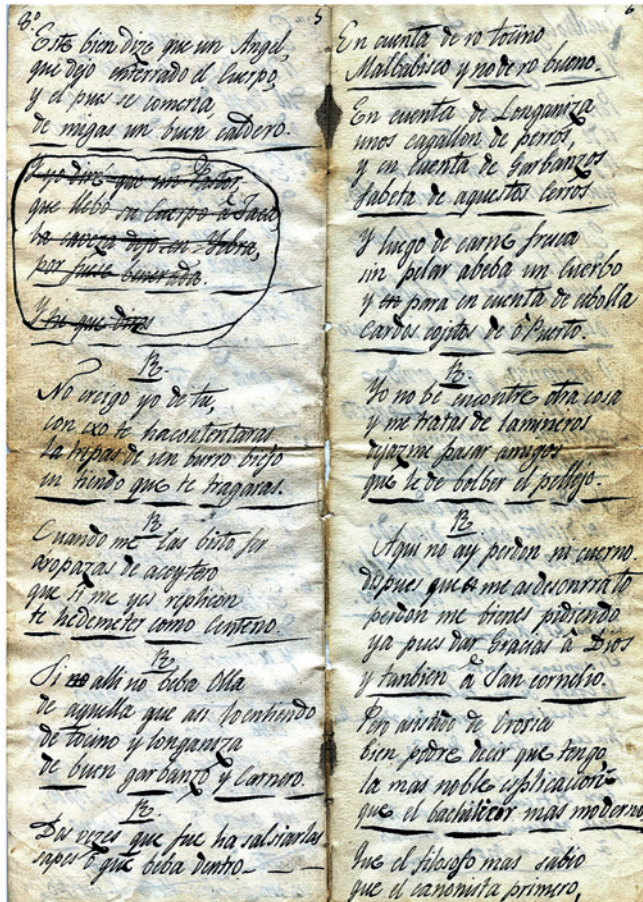 8º
5
Este bien dize que un Angel,
que dejo enterrado el Cuerpo,
y el pues se comeria,
de migas un buen caldero.
Y yo diré que un Pastor,
que llebó su Cuerpo â Jaca,
la caveza dijo en Yebra,
por fuese benerada.
Y tu que diras
R
No creigo yo de tu,
con ixo te hacontentaras
la tripas de un burro biejo
en tiendo que te tragaras.
R
Cuando me las bisto fer
sopazas de aceytero
que si me yes replicon
te hedemeter como Centeno.
R
Si no alli no beba Olla
de aquella que asi lo entiendo
de tocino y longaniza
de buen garbanzo y Carnero.
R.
Dos vezes que fue ha salsiarlas
sapes ô que beba dentro.
6
En cuenta de ro tocino
Malbabisco y no de ro bueno.
En cuenta de Longaniza
unos cagallon de perros,
y en cuenta de Garbanzos
fabeta de aquestos Cerros
Y luego de carne fresca
sin pelar abeba un Cuerbo
y en para en cuenta de cibolla
Cardos cojitos de o Puerto.
R.
Yo no be encontre otra cosa
y me tratas de lamineros
dejazme pasar amigos
que le de bolber el pellejo.
R
Aqui no ay perdon ni cuerno.
dispues que me as desonrrato
perdon me bienes pidiendo
ya pues dar Gracias â Dios
y tanbien â San cornelio.
Pero asistido de Orosia
bien podre decir que tengo,
la mas noble esplicacion
que el bachiller mas moderno
Que el filosofo mas sabio
que el canonista primero,